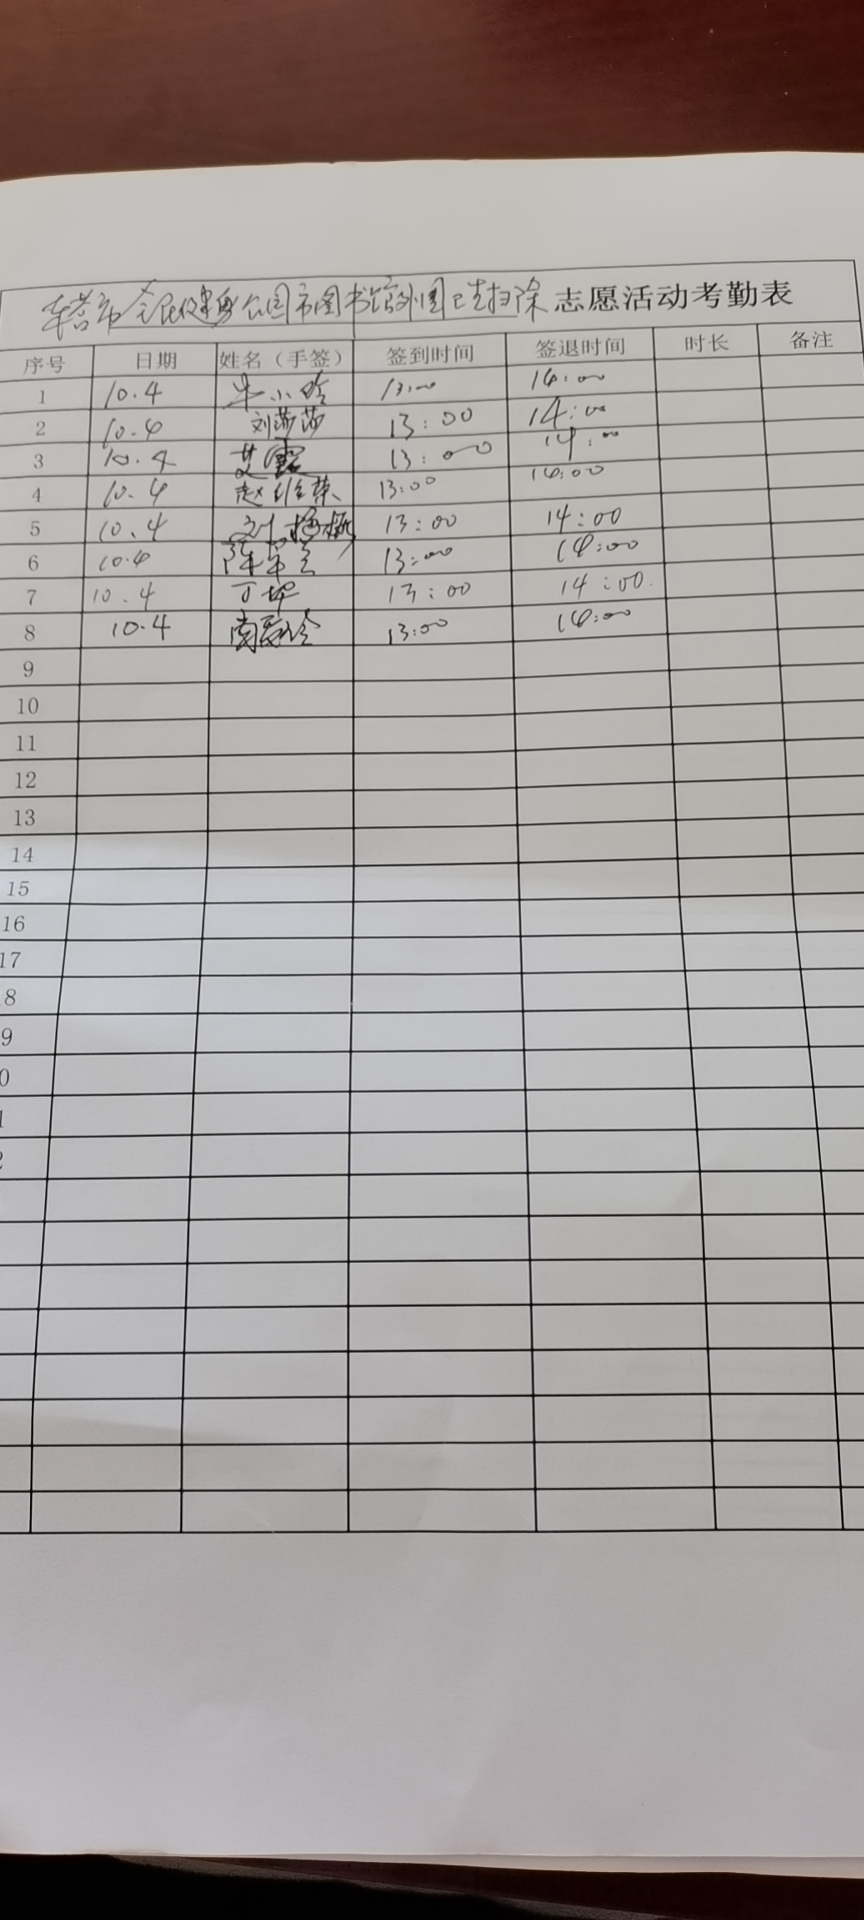 全民健身公园市图书馆外围清扫除志愿活动考勤表
序号 日期 姓名（手签） 签到时间 签退时间 时长 备注
1 10.4 牛小玲 13:00 14:00
2 10.4 刘莎莎 13:00 14:00
3 10.4 艾霞 13:00 14:00
4 10.4 赵维荣 13:00 14:00
5 10.4 刘 13:00 14:00
6 10.4 陈军 13:00 14:00
7 10.4 丁坤 13:00 14:00.
8 10.4 13:00 14:00
9
10
11
12
13
14
15
16
17
8
9
0
1
2